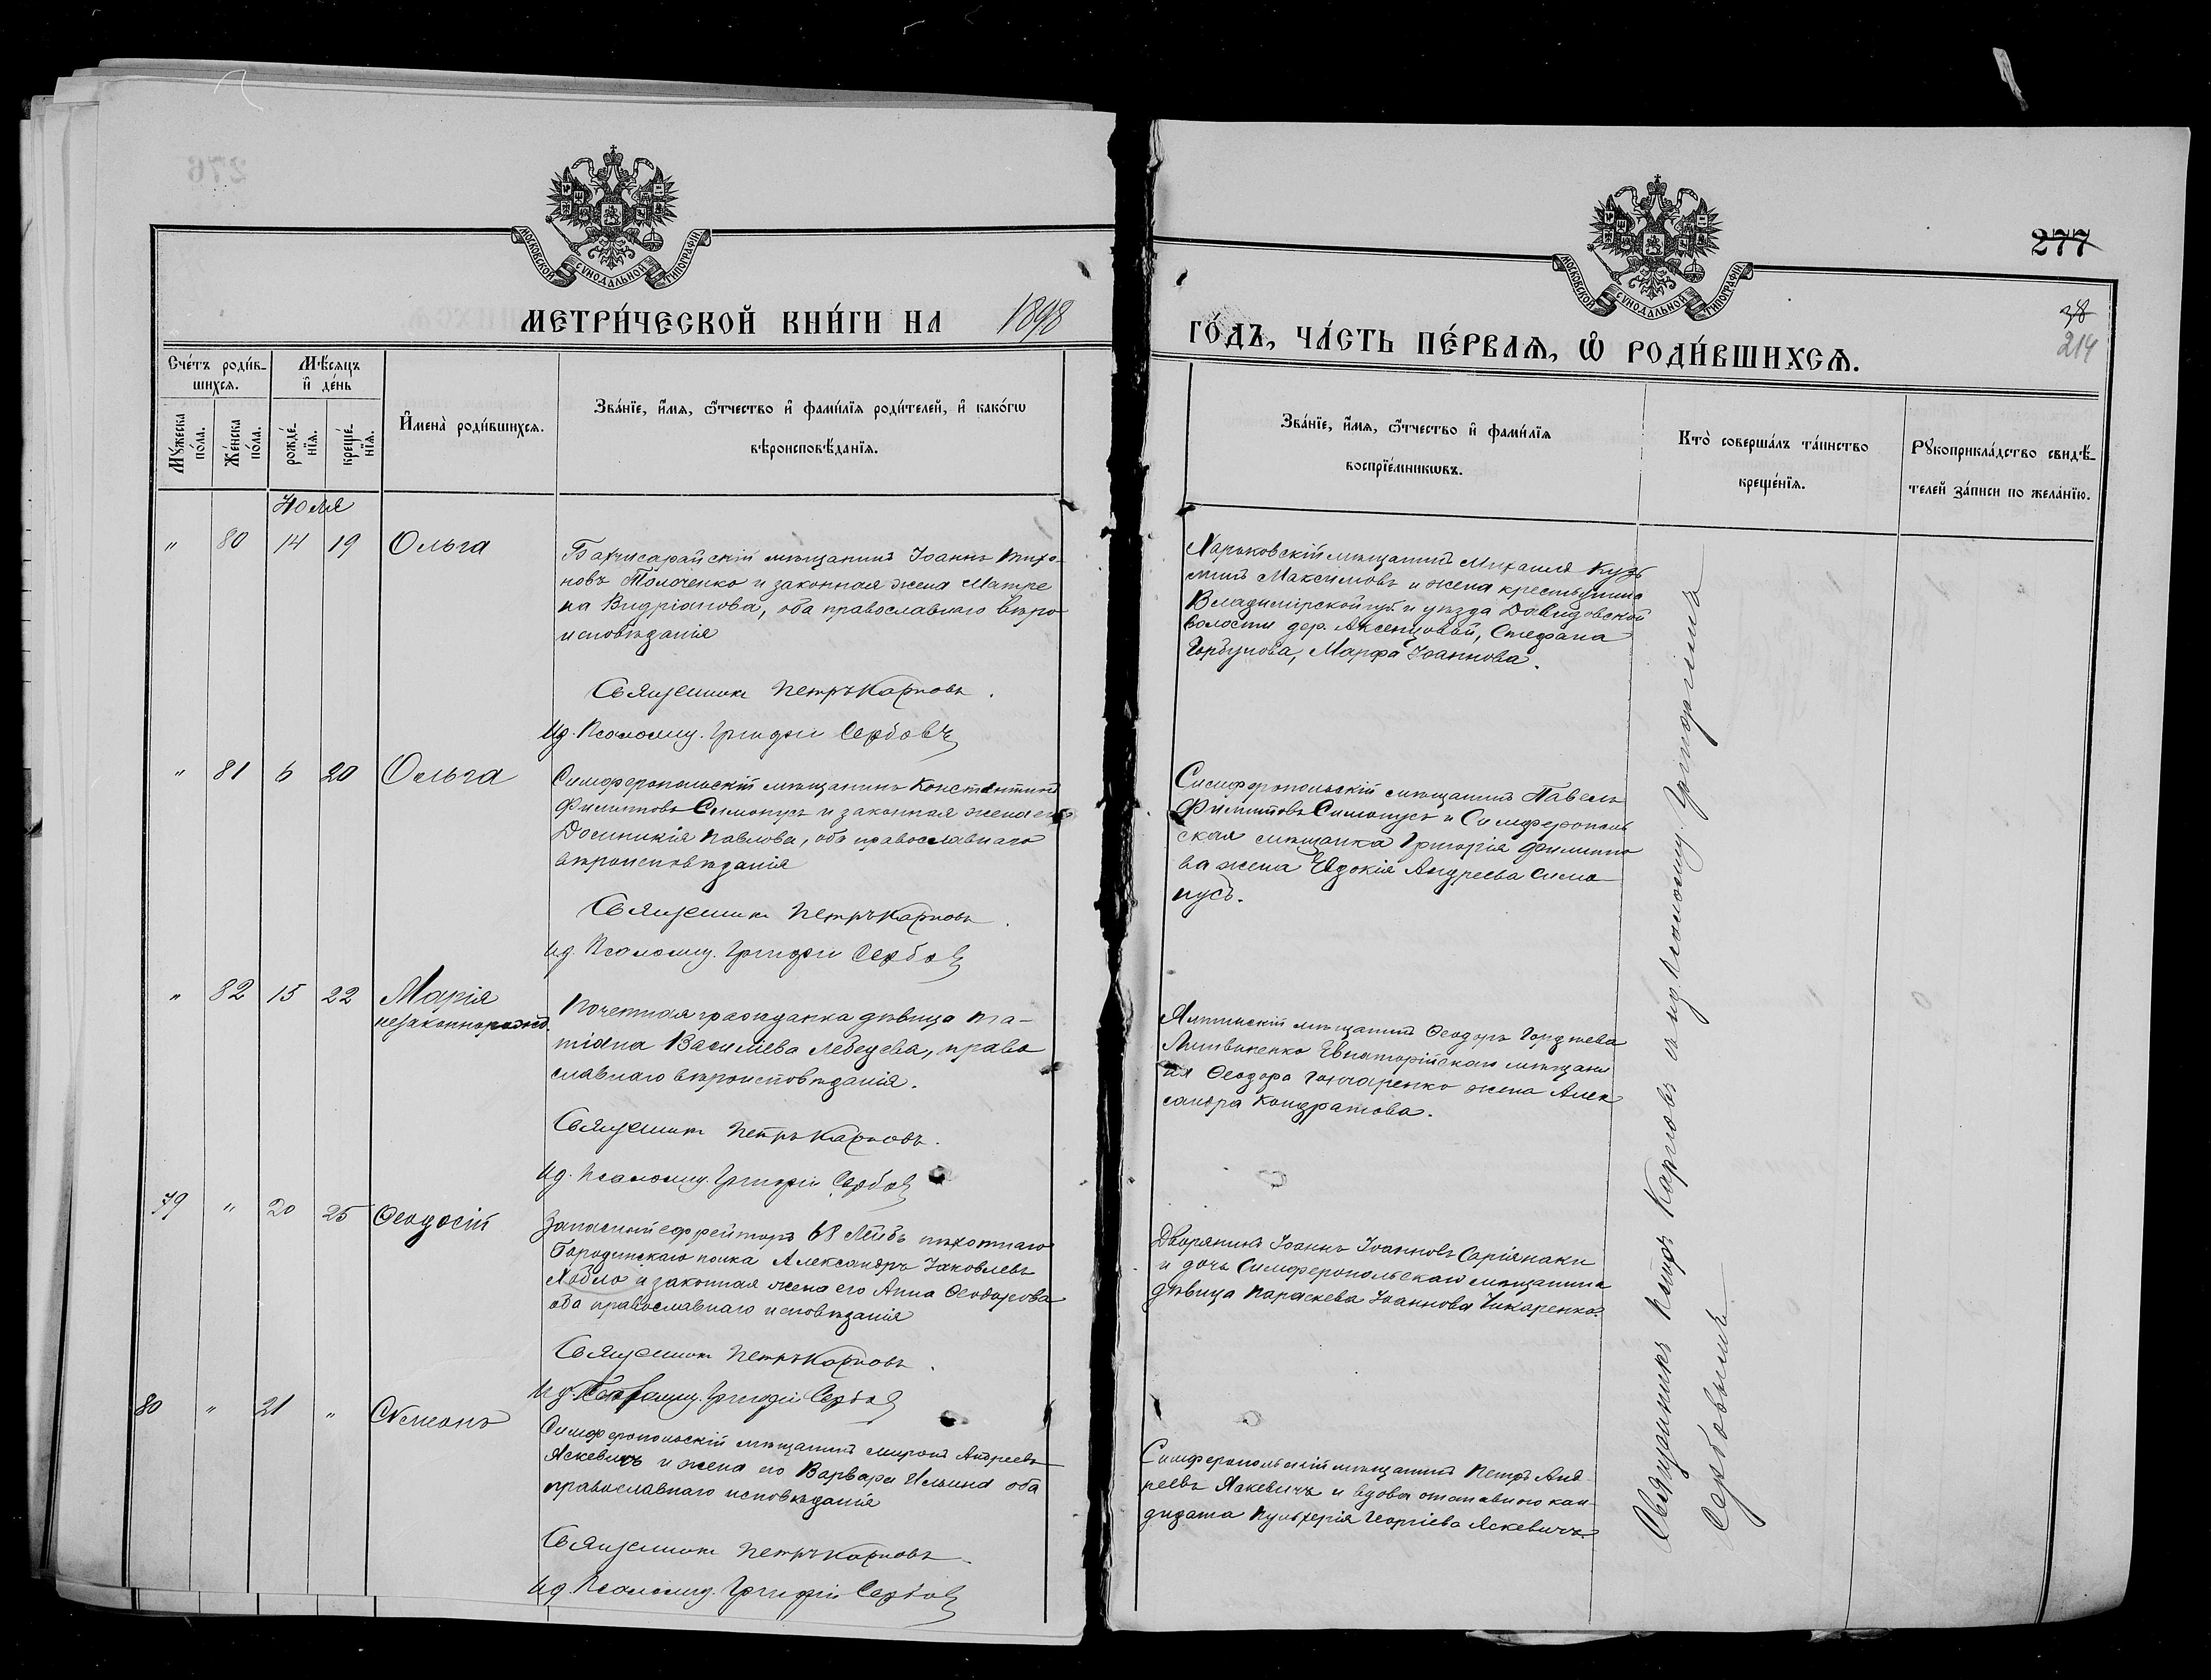 МОСКОВСКОЙ СУНОДАЛЬНОЙ ТИПОГРАФІИ
МЕТРИ́ЧЕСКОЙ КНИ́ГИ НА 1898
Сче́тъ роди́в-
шихсѧ.
Мѣ́сѧцъ
и҆ де́нь
Мꙋ́жеска
по́ла.
Же́нска
по́ла.
рожде́-
нїѧ.
креще́-
нїѧ.
И҆мена̀ роди́вшихсѧ.
Зва́нїе, и҆́мѧ, ѻ҆́тчество и҆ фами́лїѧ роди́телей, и҆ како́гѡ
вѣроисповѣ́данїѧ.
Іюля
" 80 14 19 Ольга
Бахчисарайскій мѣщанинъ Іоаннъ Тихо-
новъ Толоченко и законная жена Матре
на Видріанова, оба православнаго вѣро
исповѣданія
Священникъ Петръ Карповъ.
Ид. Псаломщ. Григорій Сербовъ
" 81 6 20 Ольга
Симферопольскій мѣщанинъ Константинъ
Филипповъ Симонусъ и законная жена его
Домникія Павлова, оба православнаго
вѣроисповѣданія
Священникъ Петръ Карповъ.
Ид. Псаломщ. Григорій Сербовъ
" 82 15 22 Марія
незаконнорожд.
Почетная гражданка дѣвица Та-
тіана Василіева Лебедева, право
славнаго вѣроисповѣданія.
Священникъ Петръ Карповъ.
Ид. Псаломщ. Григорій Сербовъ
79 " 20 25 Ѳеодосій
Запасный ефрейторъ 68 Лейбъ пѣхотнаго
Бородинскаго полка Александръ Іаковлевъ
и законная жена его Анна Ѳеодорова
оба православнаго исповѣданія
Священникъ Петръ Карповъ.
Ид. Псаломщ. Григорій Сербовъ
80 " 21 " Симеонъ
Симферопольскій мѣщанинъ Миронъ Андреевъ
Яскевичъ и жена его Варвара Ильина оба
православнаго исповѣданія
Священникъ Петръ Карповъ.
Ид. Псаломщ. Григорій Сербовъ
277
214
МОСКОВСКОЙ СУНОДАЛЬНОЙ ТИПОГРАФІИ
ГО́ДЪ, ЧА́СТЬ ПЕ́РВАѦ, Ѽ РОДИ́ВШИХСѦ.
Зва́нїе, и҆́мѧ, ѻ҆́тчество и҆ фами́лїѧ
воспрїе́мникѡвъ.
Кто̀ соверша́лъ та́инство
креще́нїѧ.
Рꙋкоприкла́дство свидѣ́-
телей за́писи по жела́нїю.
Харьковскій мѣщанинъ Михаилъ Кузь
минъ Максимовъ и жена крестьянина
Владимірской губ. и уѣзда Давидовской
волости дер. Аксенцовой, Стефана
Горбунова, Марфа Іоаннова.
Симферопольскій мѣщанинъ Павелъ
Филипповъ Симонусъ и Симферополь
ская мѣщанка Григорія Филиппо
ва жена Евдокія Андреева Симо
нусъ.
Ялтинскій мѣщанинъ Ѳеодоръ
Литвиненко Евпаторійскаго мѣщани
на Ѳеодора Гончаренко жена Алек
сандра Кондратова.
Дворянинъ Іоаннъ Іоанновъ Саріянаки
и дочь Симферопольскаго мѣщанина
дѣвица Параскева Іоаннова Чикаренко.
Симферопольскій мѣщанинъ Петръ Анд
реевъ Яскевичъ и вдова отставного кан-
дидата Пульхерія Георгіева Яскевичъ.
Священникъ Петръ Карповъ съ ид. псаломщ. Григоріемъ
Сербовымъ